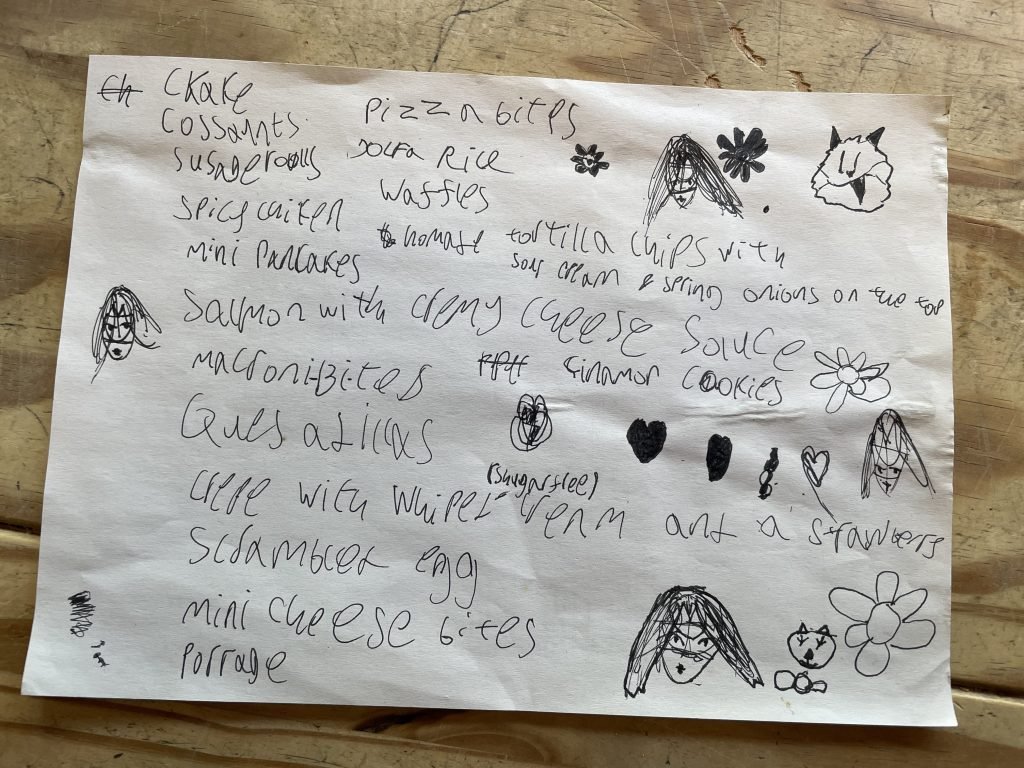 Ckake
Cossants
Susagerolls
Spicy chiken
mini Pancakes
Pizza bites
Jolfa Rice
Waffles
homade tortilla chips with
sour cream & spring onions on the top
Salmon with cremy cheese sauce
macroni-Bites
cinamon cookies
Quesadillas
(sugarfree)
crepe with whiped cream and a strawberry
Scrambled egg
mini cheese bites
Porrage